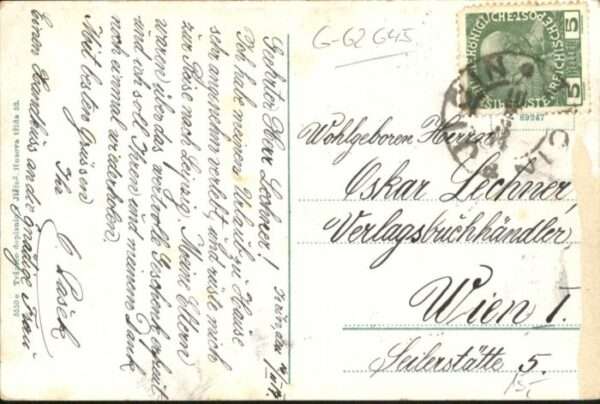 G-62 645
K. KÖNIGLICHE POST
ÖSTERREICHISCHE
5
5
89247
Wohlgeboren Herrn
Oskar Lechner,
Verlagsbuchhändler
Wien I.
Seilerstätte 5.
Geehrter Herr Lechner!
Ich habe meinen Urlaub zu Hause
sehr angenehm verlebt, und rüste mich
zur Reise nach Leipzig. Meine Eltern
waren über das wertvolle Geschenk erfreut
und ich soll Ihnen und meinen Dank
noch einmal wiederholen.
Mit besten Grüssen
Ihr
C. Pasek
Einen Handkuss an die gnädige Frau